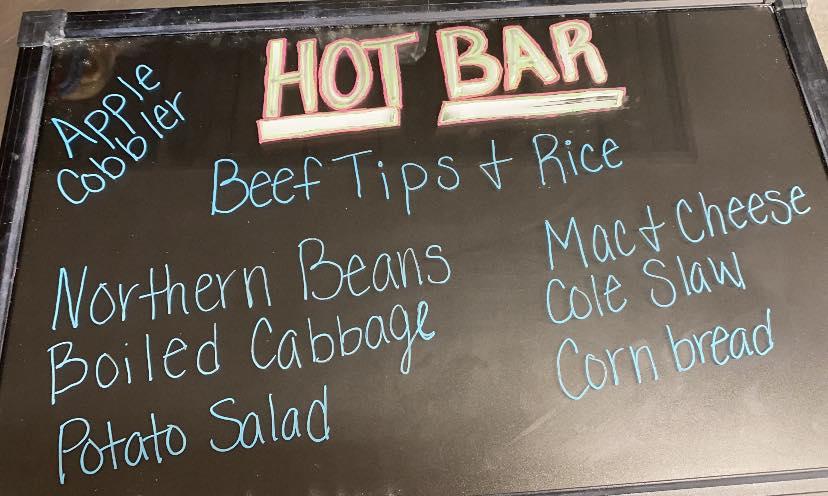 HOT BAR
Apple
Cobbler
Beef Tips + Rice
Northern Beans
Boiled Cabbage
Potato Salad
Mac + Cheese
Cole Slaw
Corn bread